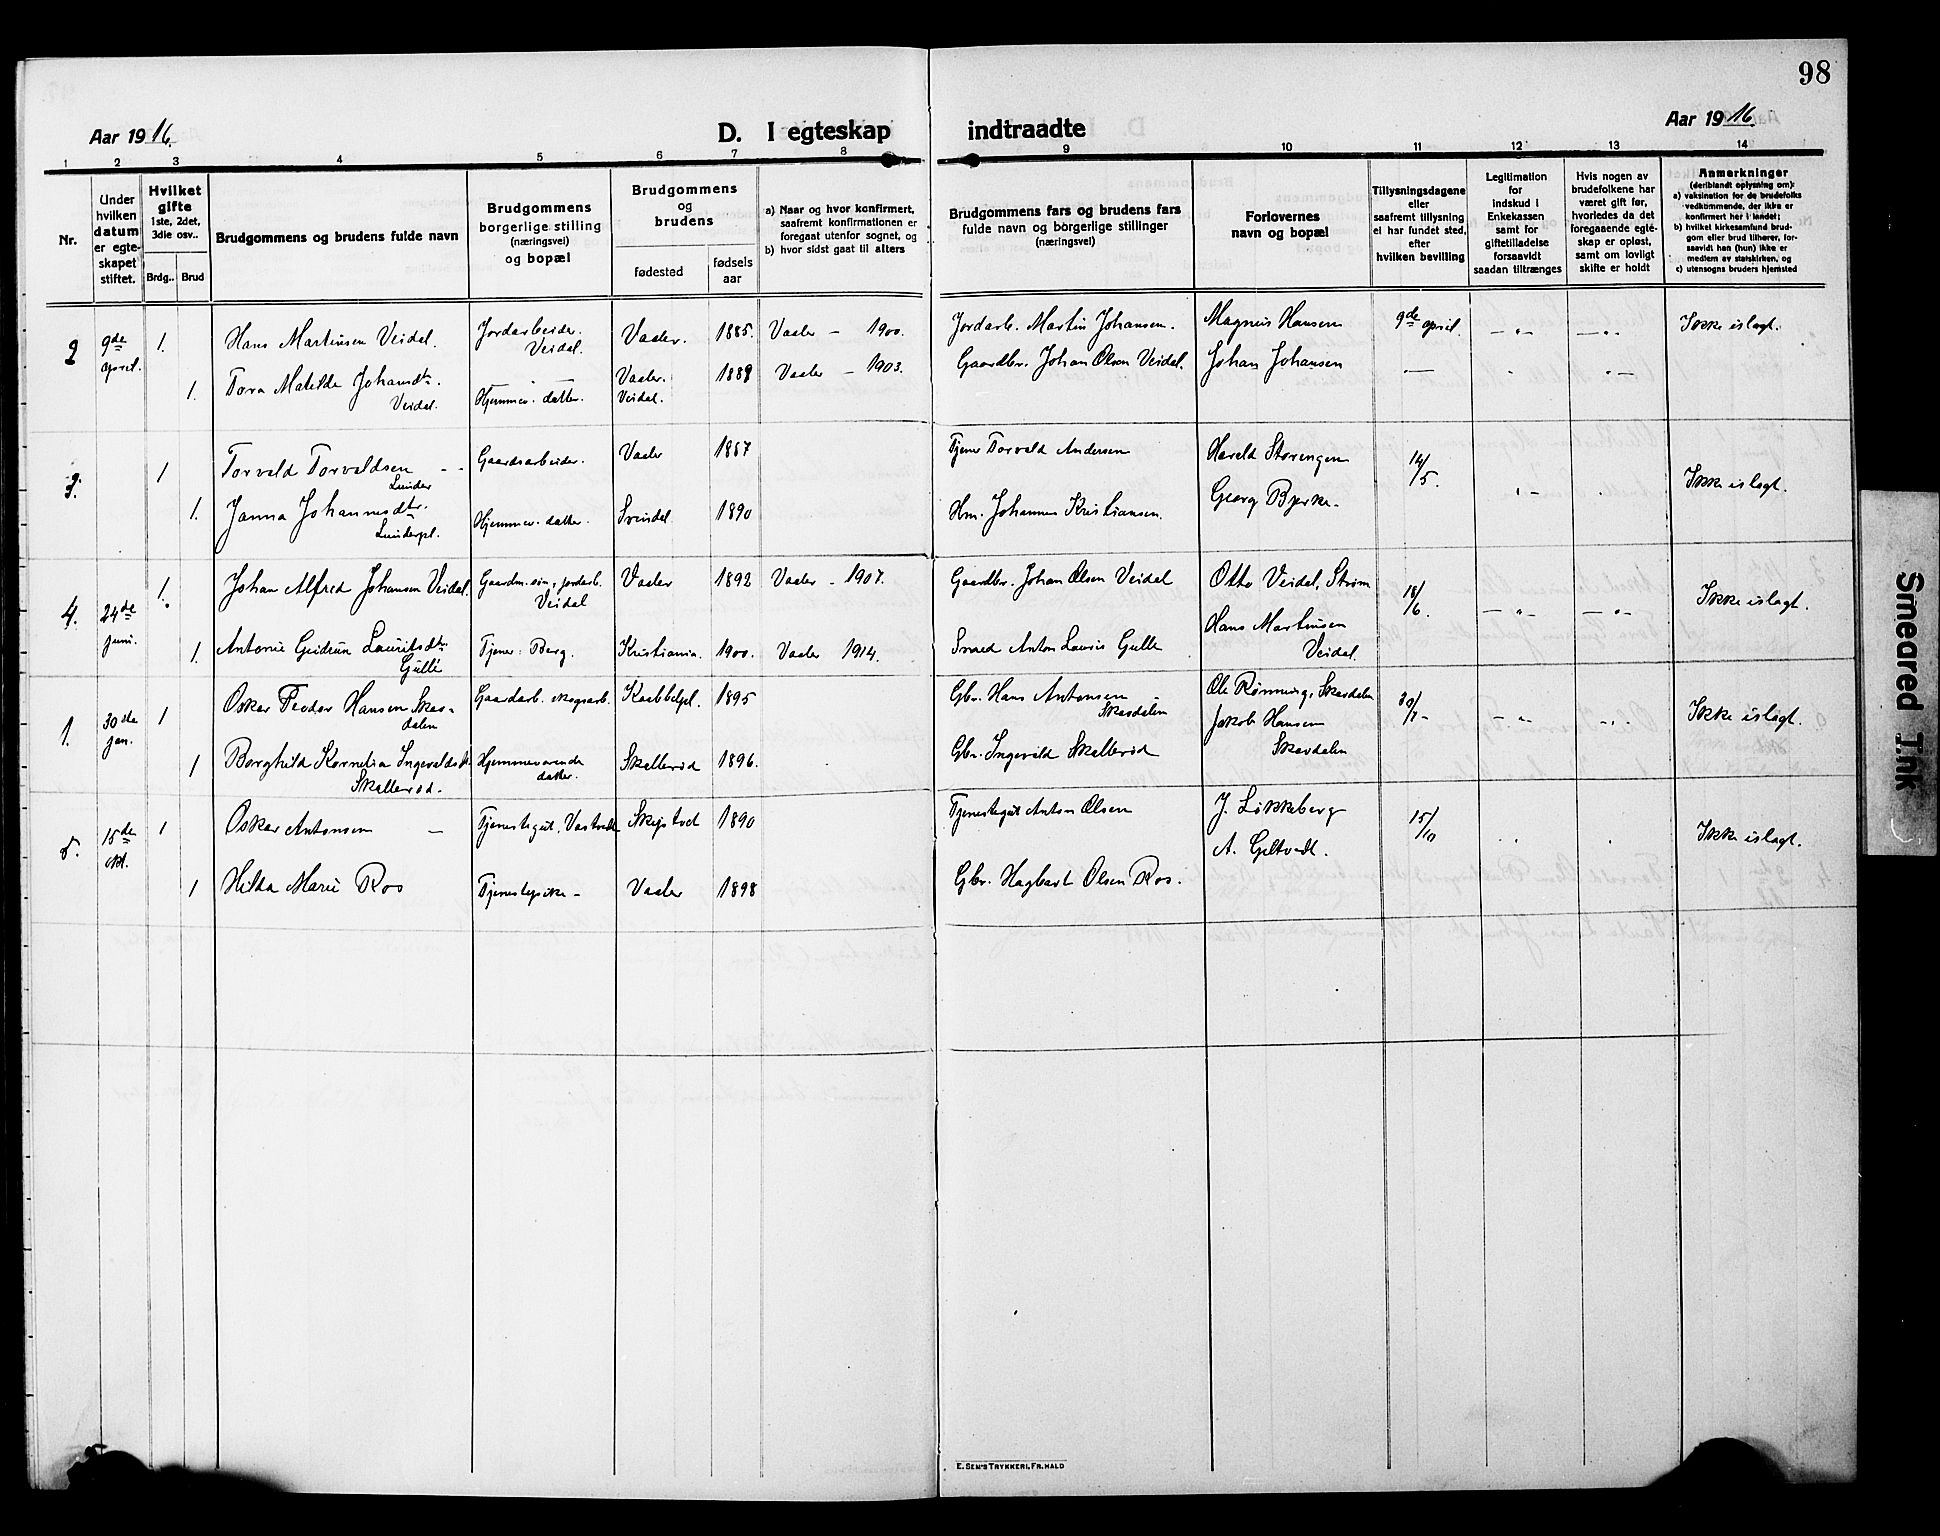 98
Aar 1916.
D. I egteskap indtraadte
Aar 1916
1 2 3 4 5 6 7 8 9 10 11 12 13 14
Nr.
Under hvilken datum er egteskapet stiftet.
Hvilket gifte
1ste, 2det, 3die osv..
Brdg.. Brud
Brudgommens og brudens fulde navn
Brudgommens borgerlige stilling (næringsvei) og bopæl
Brudgommens og brudens
fødested
fødsels aar
a) Naar og hvor konfirmert, saafremt konfirmationen er foregaat utenfor sognet, og
b) hvor sidst gaat til alters
Brudgommens fars og brudens fars fulde navn og borgerlige stillinger (næringsvei)
Forlovernes navn og bopæl
Tillysningsdagene eller saafremt tillysning ei har fundet sted, efter hvilken bevilling
Legitimation for indskud i Enkekassen samt for giftetilladelse forsaavidt saadan tiltrænges
Hvis nogen av brudefolkene har været gift før, hvorledes da det foregaaende egteskap er opløst, samt om lovligt skifte er holdt
Anmerkninger
(deriblandt oplysning om):
a) vaksination for de brudefolks vedkommende, der ikke er konfirmert her i landet;
b) hvilket kirkesamfund brudgom eller brud tilhører, forsaavidt han (hun) ikke er medlem av statskirken, og
c) utensogns bruders hjemsted
2 9de april. 1. Hans Martinsen Veidal. Jordarbeider. Veidal. Vaaler. 1885. Vaaler – 1900. Jordarb. Martin Johansen. Magnus Hansen 9de april. Ikke islagt.
1. Tora Matilde Johansdtr. Veidal. Hjemmev. datter. Vaaler. Veidal. 1889 Vaaler – 1903. Gaardbr. Johan Olsen Veidal. Johan Johansen
3. 1 Torvald Torvaldsen Lunder Gaardsarbeider. Vaaler 1887 Tjener Torvald Andersen Harald Storengen 14/5. Ikke islagt.
1. Janna Johannesdtr. Lunderpl. Hjemmev. datter. Svindal 1890 Hm. Johannes Kristiansen. Georg Bjerke
4. 24de juni. 1. Johan Alfred Johansen Veidal. Gaardm. søn, jordarb. Veidal Vaaler 1892 Vaaler – 1907. Gaardbr. Johan Olsen Veidal Otto Veidal, Strøm 18/6. Ikke islagt.
1. Antonie Gudrun Lauritsdtr. Gulle Tjener: Berg. Kristiania. 1900. Vaaler 1914. Smed Anton Lauris Gulle Hans Martinsen Veidal.
1. 30te jan. 1 Oskar Teodor Hansen Skasdalen Gaardarb. skogsarb. Kaabbelpl. 1895 Gbr. Hans Antonsen Skasdalen Ole Rønning, Skasdalen 30/1 Ikke islagt.
1 Borghild Kornelia Ingevaldsdtr. Skallerød. Hjemmeværende datter. Skallerød 1896. Gbr. Ingevald Skallerød Jakob Hansen Skasdalen
5. 15de okt. 1 Oskar Antonsen Tjenestegut, Skiptvet 1890 Tjenestegut Anton Olsen J. Løkkeberg 15/10 Ikke islagt.
1 Hilda Marie Ros Tjenestepike Vaaler 1898 Gbr. Hagbart Olsen Ros. A. Gjltvedt.
E. SEM'S TRYKKERI, FR.HALD
Smeared Ink